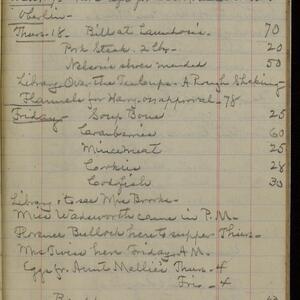 Oberlin.
Thurs. 18. Bill at Laundry's. 70
Pork Steak. 2 lbs. 20
Nelson's shoes mended 50
Library. Over the Teacups. A Rough Shaking.
Flannels for Harry on approval - 78
Friday. Soup Bone 25
Cranberries 60
Mincemeat 25
Cookies 28
Codfish 30
Library & to see Mrs Brooks.
Miss Wadsworth came in P.M.
Florence Bullock here to supper Thurs.
Mrs here Friday A.M.
Eggs fr. Aunt Mellie's Thurs. - 4
Fri. - 4